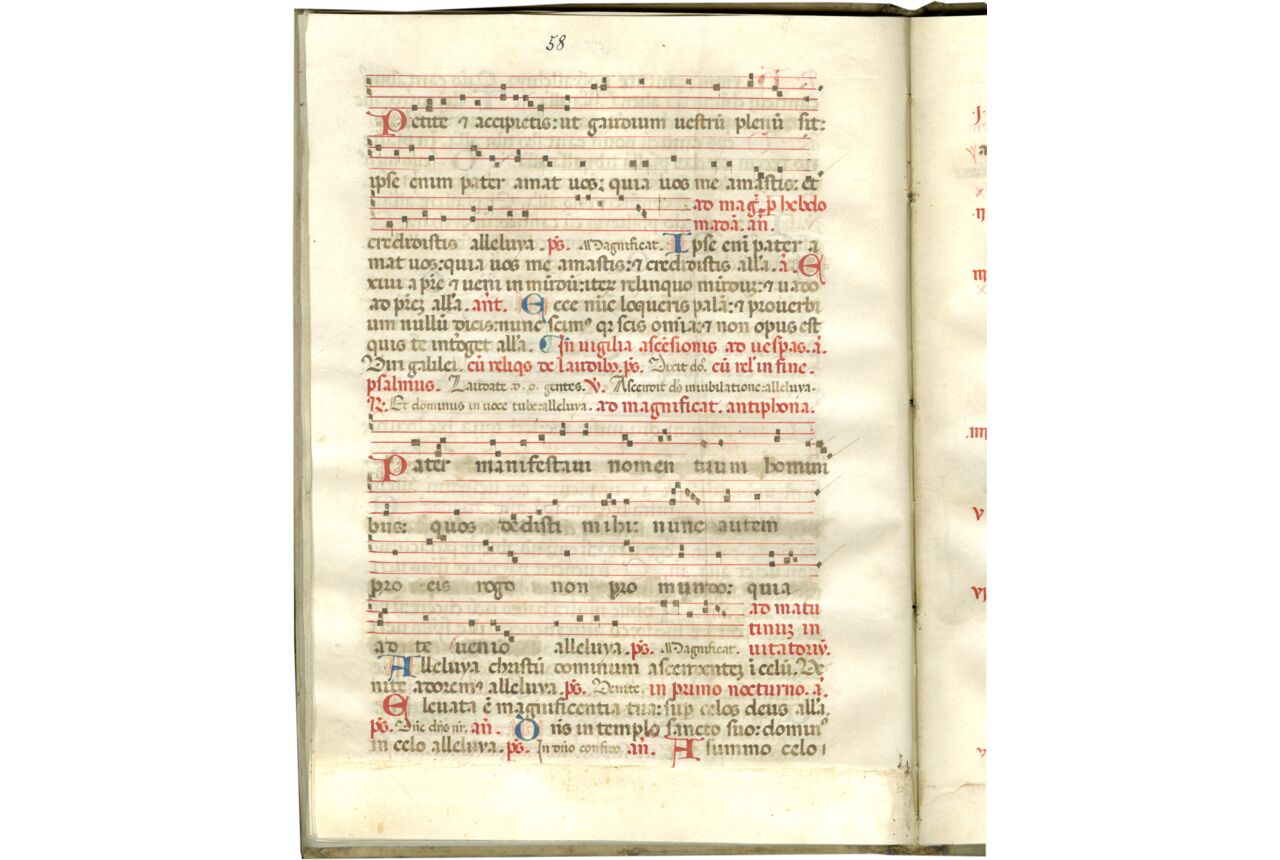 58
Petite ⁊ accipietis: ut gaudium uestrū plenū sit:
ipse enim pater amat uos: quia uos me amastis: et
ad mag̃. p hebdo
madā. añ.
credidistis alleluya. ps̃. Magnificat. Ipse eni pater a
mat uos: quia uos me amastis: ⁊ credidistis all'a. a̅. E
xiui a p̃re ⁊ ueni in mūdū: iterʒ relinquo mūdūʒ: ⁊ uado
ad p̃reʒ all'a. añt. Ecce nūc loqueris palā: ⁊ prouerbi
um nullū dicis: nunc scimꝰ qꝛ scis om̅ia: ⁊ non opus est
quis te int̃oget all'a. In uigilia ascēsionis ad uesp̃as. a̅.
Uiri galilei. cū reliq̃s de laudibꝰ. ps̃. Dixit dñs. cū rel' in fine.
psalmus. Laudate d. o. gentes. V. Ascendit ds̄ in iubilatione alleluya.
R. Et dominus in uoce tube alleluya. ad magnificat. antiphona.
Pater manifestaui nomen tuum homini
bus: quos dedisti mihi: nunc autem
pro eis rogo non pro mundo: quia
ad matu
tinuʒ in
ad te uenio alleluya. ps̃. Magnificat. uitatoriū.
Alleluya christū dominum ascendenteʒ i celū. Ue
nite adoremꝰ alleluya. ps̃. Uenite. in primo nocturno. a̅.
Eleuata ē magnificentia tua: suꝑ celos deus all'a.
ps̃. Dñe dñs nr̄. añ. Dñs in templo sancto suo: dominꝰ
in celo alleluya. ps̃. In dño confido. añ. A summo celo